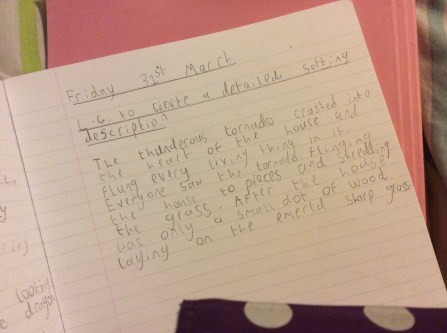 Friday 31st March
L.G. to write a detailed setting
description
The thunderous tornado crashed into
the heart of the house and
flung every living thing in it.
Everyone saw the tornado flinging
the house to pieces and shredding
the grass. After the house
was only a small dot of wood
laying on the emerld sharp grass
looking
dragon